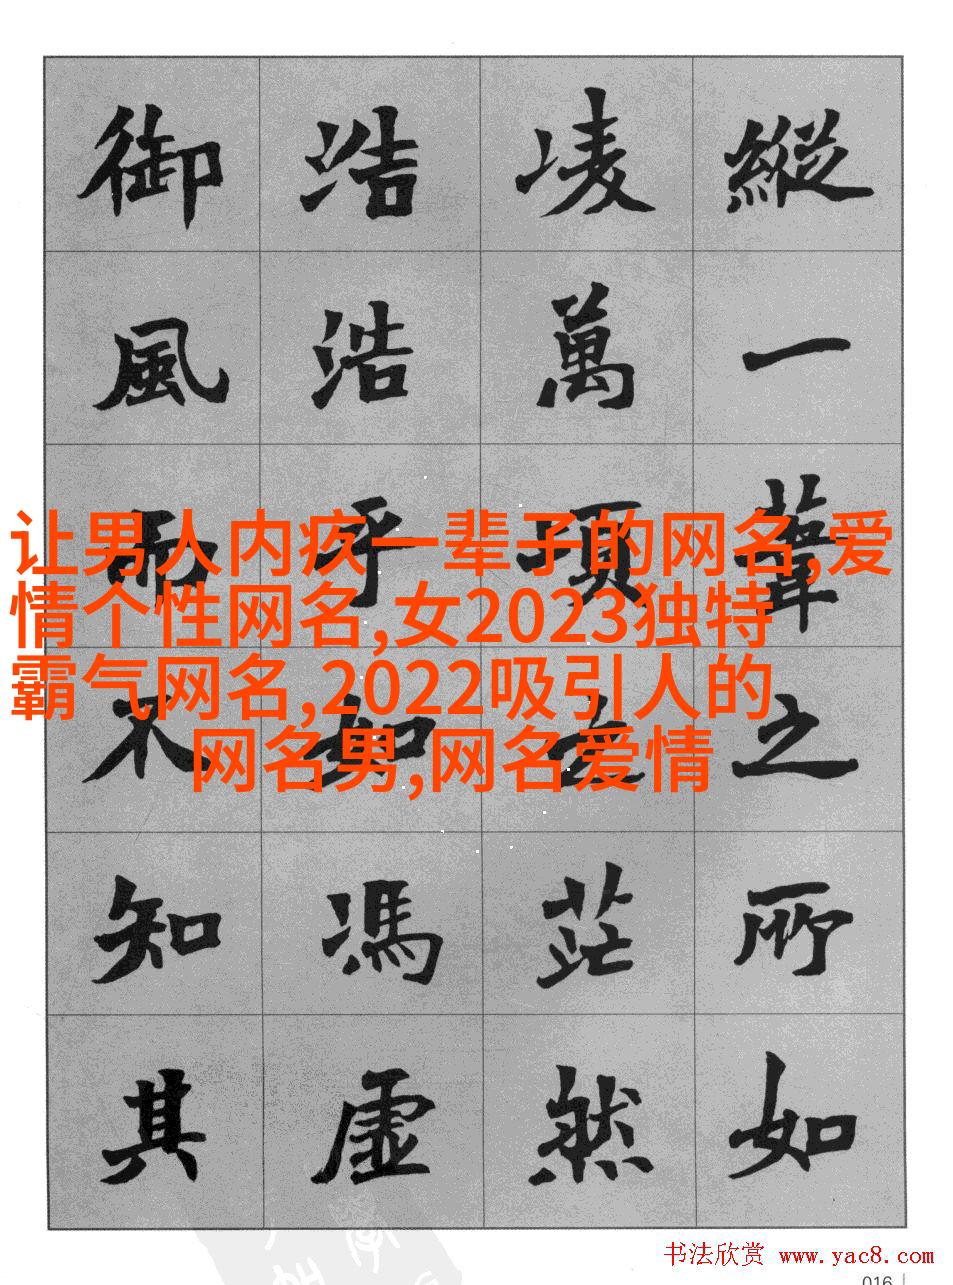 縱一葦之所如
凌萬頃之茫然
浩浩乎如馮虛
御風而不知其
让男人内疚一辈子的网名,爱
情个性网名,女2023独特
霸气网名,2022吸引人的
网名男,网名爱情
书法欣赏 www.yac8.com
016